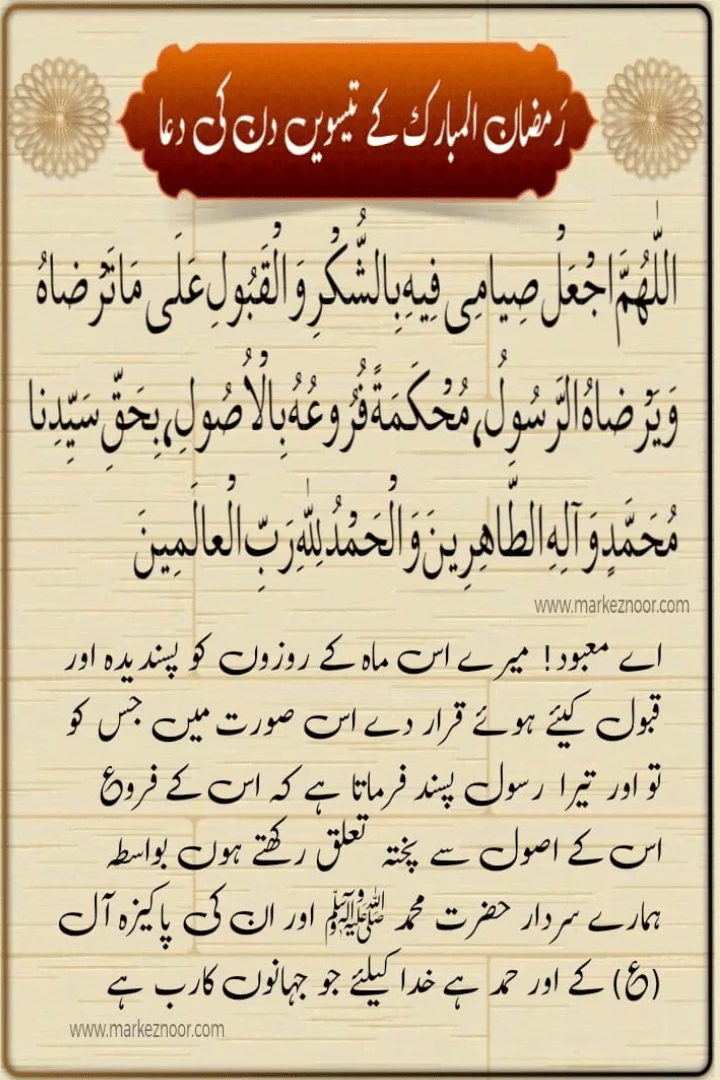 رَمضان المبارک کے تیسویں دن کی دعا
اللّٰهُمَّ اجْعَلْ صِيامِی فِيهِ بِالشُّكْرِ وَالْقَبُولِ عَلَى مَا تَرْضاهُ
وَيَرْضاهُ الرَّسُولُ، مُحْكَمَةً فُرُوعُهُ بِالْأُصُولِ، بِحَقِّ سَيِّدِنا
مُحَمَّدٍ وَآلِهِ الطَّاهِرِينَ وَالْحَمْدُ لِلّٰهِ رَبِّ الْعالَمِينَ
www.markeznoor.com
اے معبود! میرے اس ماہ کے روزوں کو پسندیدہ اور
قبول کیئے ہوئے قرار دے اس صورت میں جس کو
تو اور تیرا رسول پسند فرماتا ہے کہ اس کے فروع
اس کے اصول سے پختہ تعلق رکھتے ہوں بواسطہ
ہمارے سردار حضرت محمد ﷺ اور ان کی پاکیزہ آل
(ع) کے اور حمد ہے خدا کیلئے جو جہانوں کا رب ہے
www.markeznoor.com